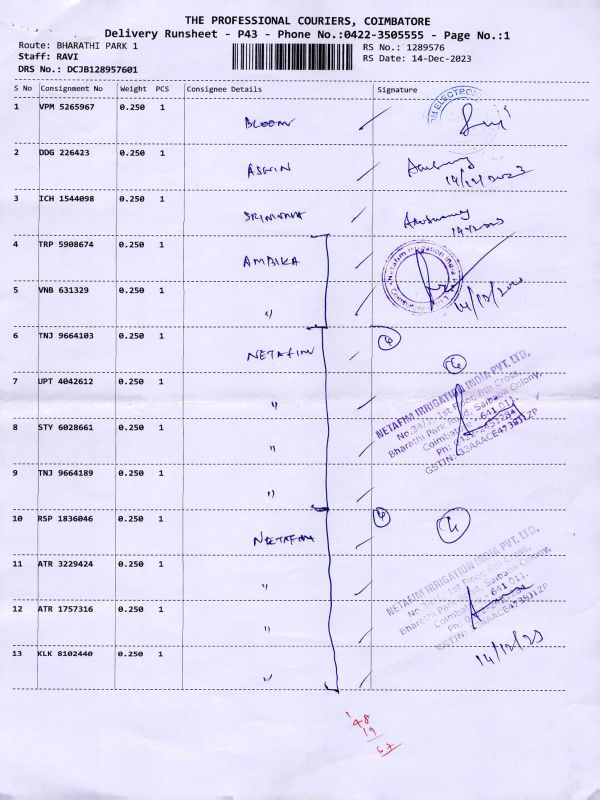 THE PROFESSIONAL COURIERS, COIMBATORE
Delivery Runsheet - P43 - Phone No.:0422-3505555 - Page No.:1
Route: BHARATHI PARK 1 RS No.: 1289576
Staff: RAVI RS Date: 14-Dec-2023
DRS No.: DCJB128957601
S No Consignment No Weight PCS Consignee Details Signature
1 VPM 5265967 0.250 1
BLOOM
2 DDG 226423 0.250 1
ASWIN
14/12/2023
3 ICH 1544098 0.250 1
4 TRP 5908674 0.250 1
AMBIKA
Netafim Irrigation India
5 VNB 631329 0.250 1
"
6 TNJ 9664103 0.250 1
NETAFIM
7 UPT 4042612 0.250 1
"
NETAFIM IRRIGATION INDIA PVT. LTD.
1st Floor, 8th Cross,
Bharathi Park Road, Saibaba Colony,
Coimbatore - 641 011.
GSTIN: 33AAACE4738J1ZP
8 STY 6028661 0.250 1
"
9 TNJ 9664189 0.250 1
"
10 RSP 1836046 0.250 1
NETAFIM
11 ATR 3229424 0.250 1
"
NETAFIM IRRIGATION INDIA PVT. LTD.
1st Floor, 8th Cross,
Bharathi Park Road, Saibaba Colony,
Coimbatore - 641 011.
GSTIN: 33AAACE4738J1ZP
12 ATR 1757316 0.250 1
"
14/12/23
13 KLK 8102440 0.250 1
"
48
19
67